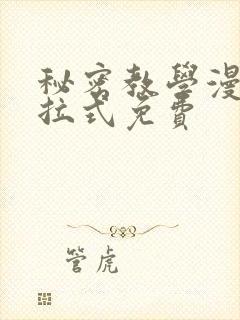 秘密教學漫
拉式免費
管虎